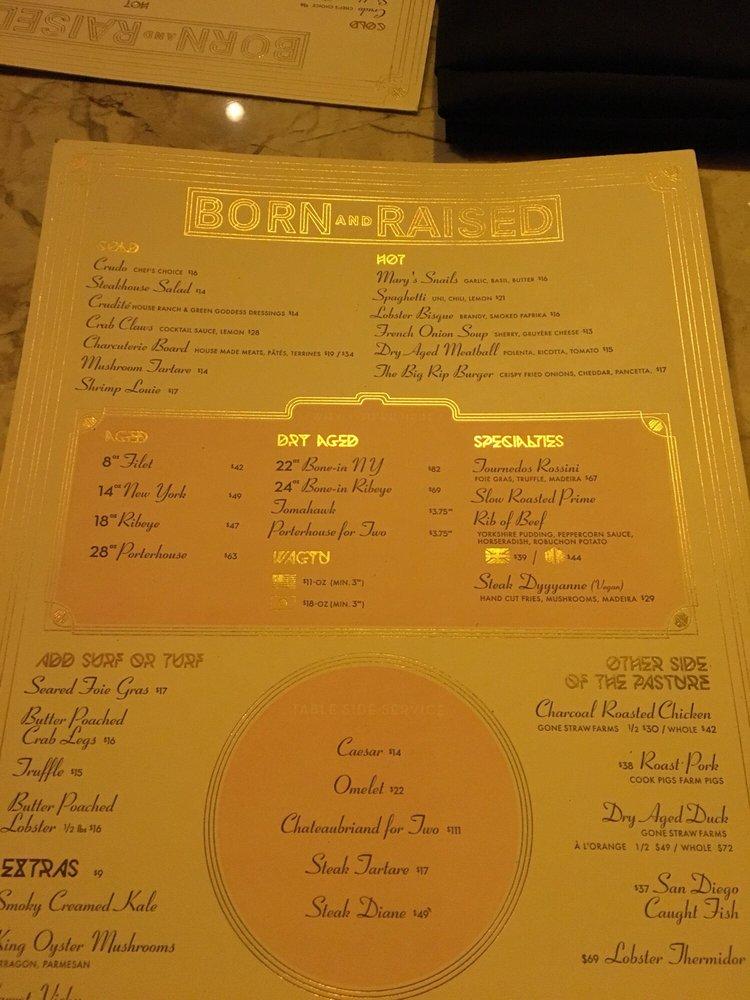 COLD
Crudo CHEF'S CHOICE $16
HOT
BORN AND RAISED
BORN AND RAISED
COLD
Crudo CHEF'S CHOICE $16
Steakhouse Salad $14
Crudité HOUSE RANCH & GREEN GODDESS DRESSINGS $14
Crab Claws COCKTAIL SAUCE, LEMON $28
Charcuterie Board HOUSE MADE MEATS, PÂTÉS, TERRINES $19 / $34
Mushroom Tartare $14
Shrimp Louie $17
HOT
Mary's Snails GARLIC, BASIL, BUTTER $16
Spaghetti UNI, CHILI, LEMON $21
Lobster Bisque BRANDY, SMOKED PAPRIKA $16
French Onion Soup SHERRY, GRUYÈRE CHEESE $13
Dry Aged Meatball POLENTA, RICOTTA, TOMATO $15
The Big Rip Burger CRISPY FRIED ONIONS, CHEDDAR, PANCETTA, $17
AGED
8oz Filet $42
14oz New York $49
18oz Ribeye $47
28oz Porterhouse $63
DRY AGED
22oz Bone-in NY $82
24oz Bone-in Ribeye $69
Tomahawk $3.75oz
Porterhouse for Two $3.75oz
WAGYU
$11-OZ (MIN. 3oz)
$18-OZ (MIN. 3oz)
SPECIALTIES
Tournedos Rossini
FOIE GRAS, TRUFFLE, MADEIRA $67
Slow Roasted Prime
Rib of Beef
YORKSHIRE PUDDING, PEPPERCORN SAUCE,
HORSERADISH, ROBUCHON POTATO
$39 / $44
Steak Dyyyanne (Vegan)
HAND CUT FRIES, MUSHROOMS, MADEIRA $29
ADD SURF OR TURF
Seared Foie Gras $17
Butter Poached
Crab Legs $16
Truffle $15
Butter Poached
Lobster 1/2 lbs $16
EXTRAS $9
Smoky Creamed Kale
King Oyster Mushrooms
TARRAGON, PARMESAN
TABLE SIDE SERVICE
Caesar $14
Omelet $22
Chateaubriand for Two $111
Steak Tartare $17
Steak Diane $49
OTHER SIDE
OF THE PASTURE
Charcoal Roasted Chicken
GONE STRAW FARMS 1/2 $30 / WHOLE $42
$38 Roast Pork
COOK PIGS FARM PIGS
Dry Aged Duck
GONE STRAW FARMS
À L'ORANGE 1/2 $49 / WHOLE $72
$37 San Diego
Caught Fish
$69 Lobster Thermidor